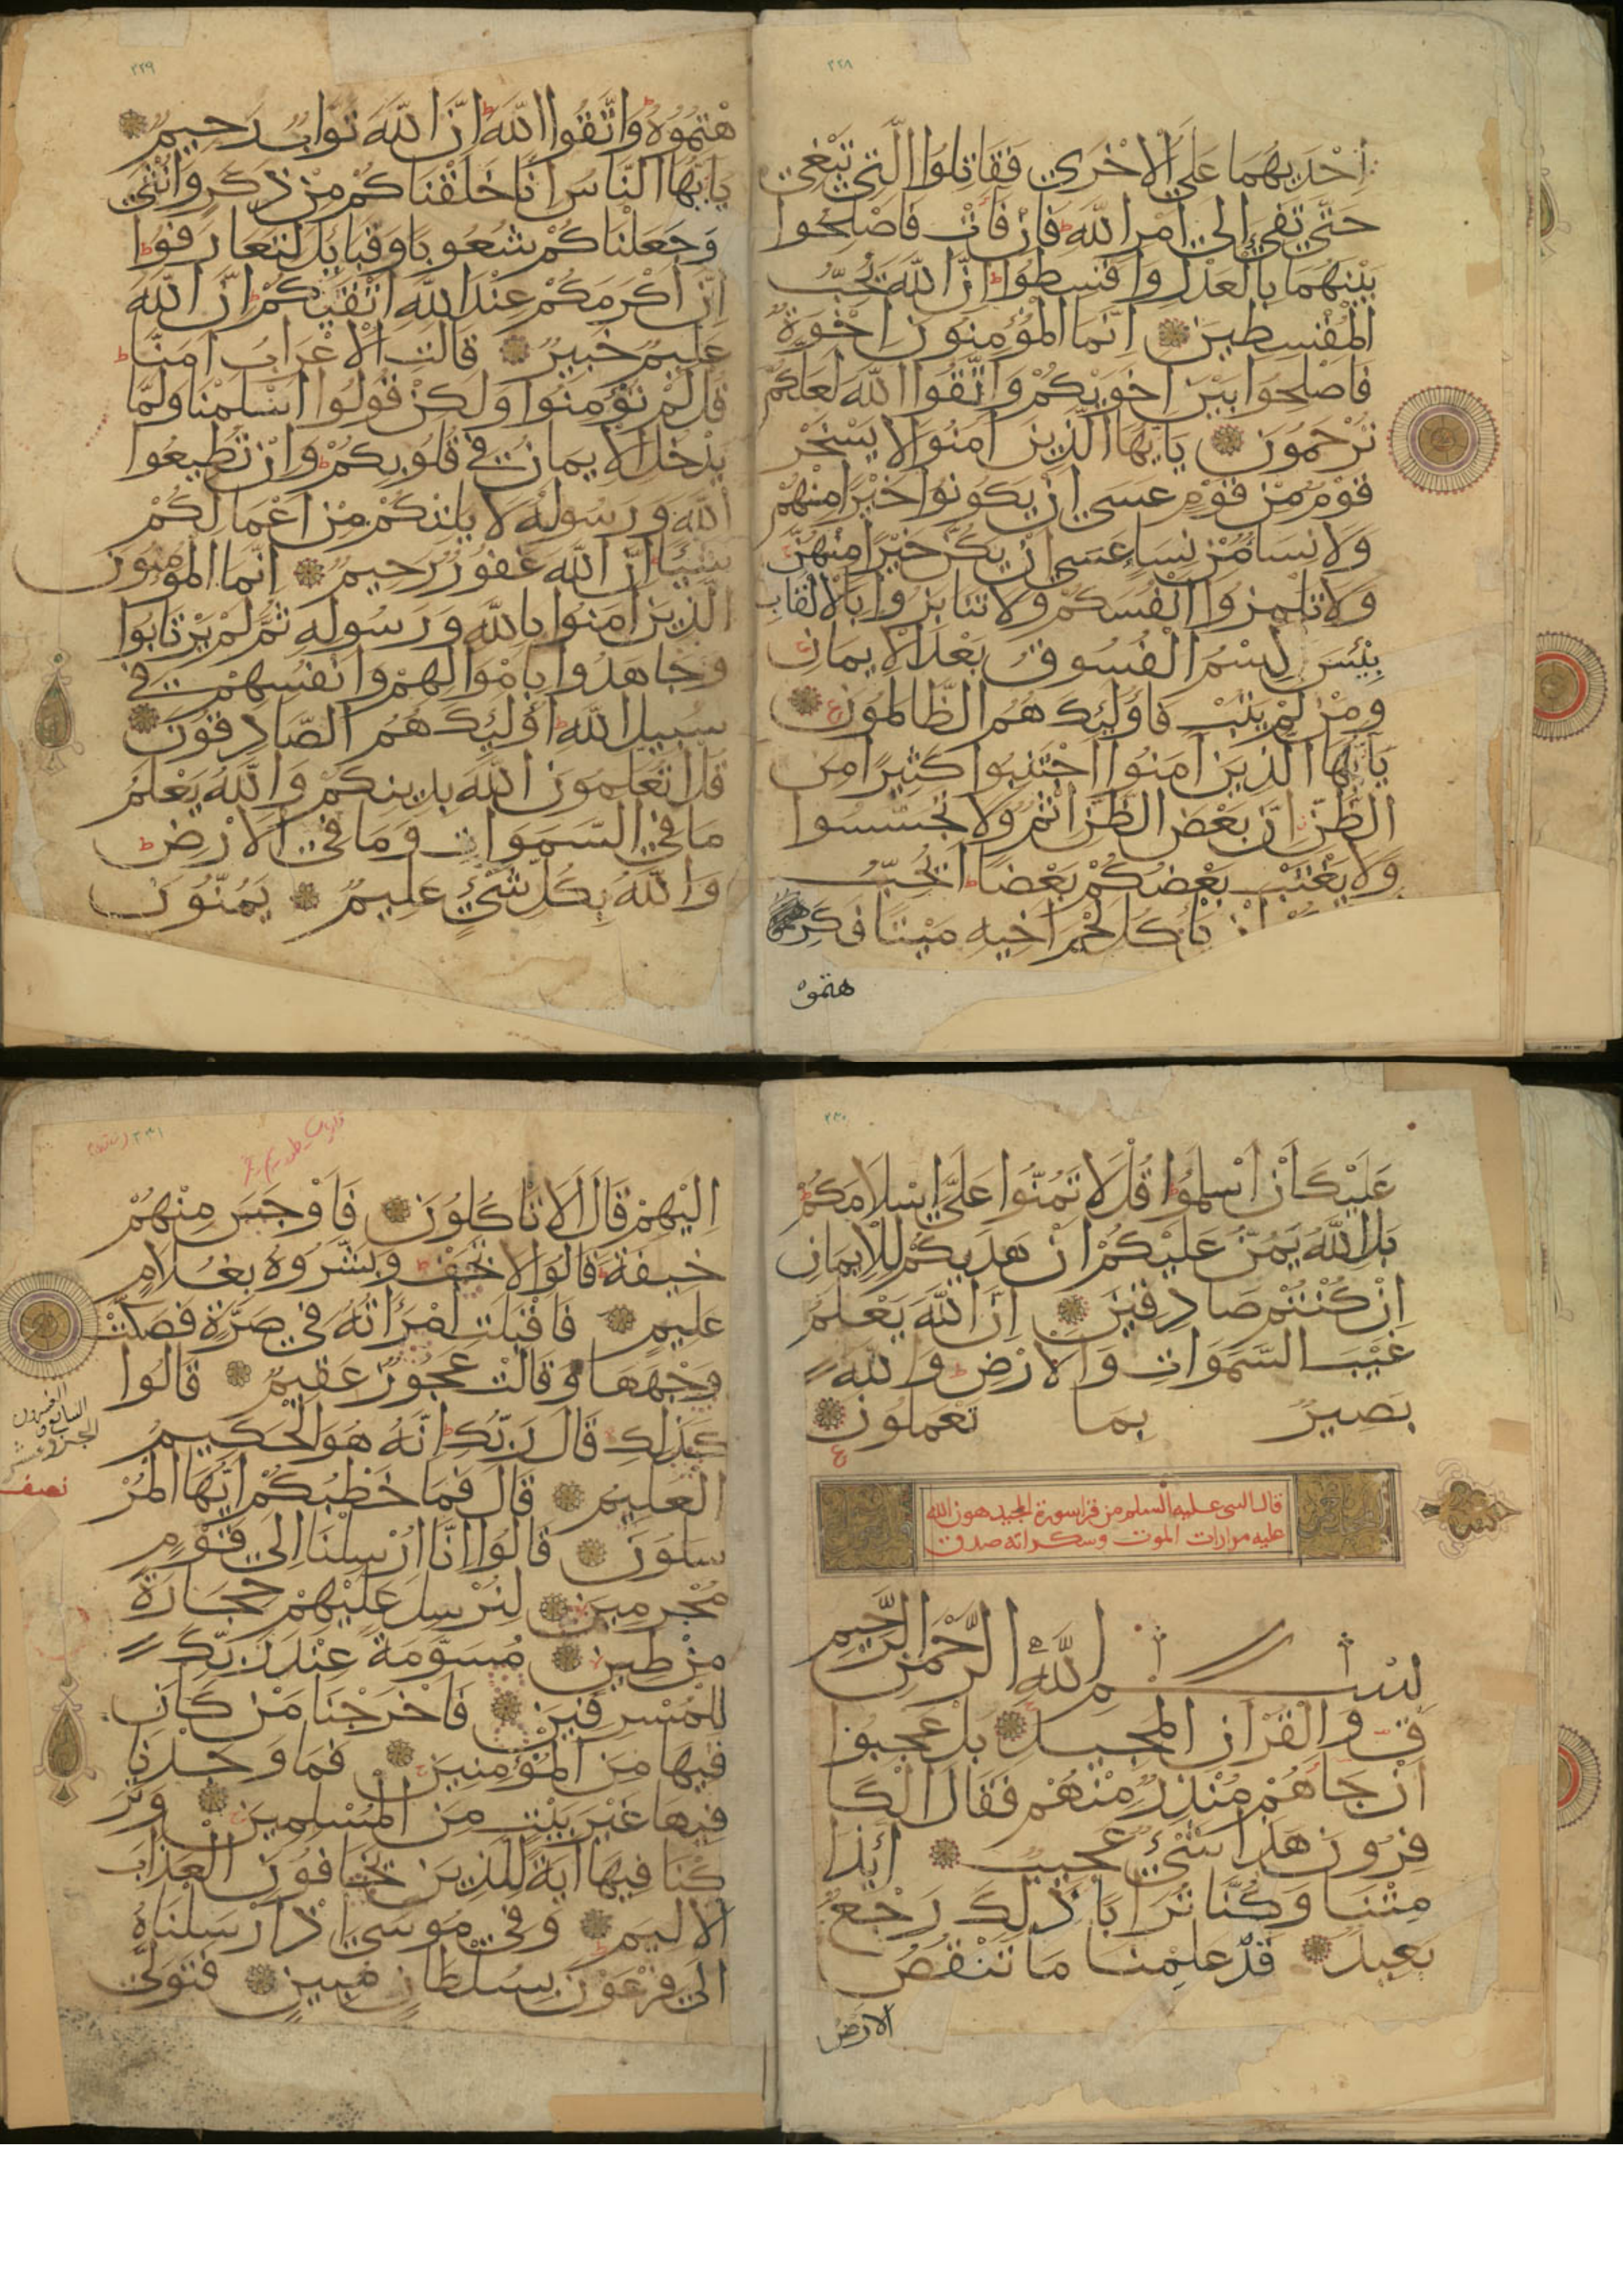 ٢٢٨
اِحْدٰيهُمَا عَلَى الْاُخْرٰى فَقَاتِلُوا الَّتِى تَبْغِى
حَتّٰى تَفِىءَ اِلٰى اَمْرِ اللّٰهِ ط فَاِنْ فَاءَتْ فَاَصْلِحُوا
بَيْنَهُمَا بِالْعَدْلِ وَاَقْسِطُوا ط اِنَّ اللّٰهَ يُحِبُّ
الْمُقْسِطِينَ اِنَّمَا الْمُؤْمِنُونَ اِخْوَةٌ
فَاَصْلِحُوا بَيْنَ اَخَوَيْكُمْ وَاتَّقُوا اللّٰهَ لَعَلَّكُمْ
تُرْحَمُونَ يَا اَيُّهَا الَّذِينَ اٰمَنُوا لَا يَسْخَرْ
قَوْمٌ مِنْ قَوْمٍ عَسٰى اَنْ يَكُونُوا خَيْرًا مِنْهُمْ
وَلَا نِسَاءٌ مِنْ نِسَاءٍ عَسٰى اَنْ يَكُنَّ خَيْرًا مِنْهُنَّ
وَلَا تَلْمِزُوا اَنْفُسَكُمْ وَلَا تَنَابَزُوا بِالْاَلْقَابِ
بِئْسَ الِاسْمُ الْفُسُوقُ بَعْدَ الْاِيمَانِ
وَمَنْ لَمْ يَتُبْ فَاُولٰئِكَ هُمُ الظَّالِمُونَ ع
يَا اَيُّهَا الَّذِينَ اٰمَنُوا اجْتَنِبُوا كَثِيرًا مِنَ
الظَّنِّ اِنَّ بَعْضَ الظَّنِّ اِثْمٌ وَلَا تَجَسَّسُوا
وَلَا يَغْتَبْ بَعْضُكُمْ بَعْضًا ط اَيُحِبُّ
اَنْ يَأْكُلَ لَحْمَ اَخِيهِ مَيْتًا فَكَرِ
هتموه
٢٢٩
هْتُمُوهُ ط وَاتَّقُوا اللّٰهَ ط اِنَّ اللّٰهَ تَوَّابٌ رَحِيمٌ
يَا اَيُّهَا النَّاسُ اِنَّا خَلَقْنَاكُمْ مِنْ ذَكَرٍ وَاُنْثٰى
وَجَعَلْنَاكُمْ شُعُوبًا وَقَبَائِلَ لِتَعَارَفُوا ط
اِنَّ اَكْرَمَكُمْ عِنْدَ اللّٰهِ اَتْقٰيكُمْ ط اِنَّ اللّٰهَ
عَلِيمٌ خَبِيرٌ قَالَتِ الْاَعْرَابُ اٰمَنَّا ط
قُلْ لَمْ تُؤْمِنُوا وَلٰكِنْ قُولُوا اَسْلَمْنَا وَلَمَّا
يَدْخُلِ الْاِيمَانُ فِى قُلُوبِكُمْ ط وَاِنْ تُطِيعُوا
اللّٰهَ وَرَسُولَهُ لَا يَلِتْكُمْ مِنْ اَعْمَالِكُمْ
شَيْئًا ط اِنَّ اللّٰهَ غَفُورٌ رَحِيمٌ اِنَّمَا الْمُؤْمِنُونَ
الَّذِينَ اٰمَنُوا بِاللّٰهِ وَرَسُولِهِ ثُمَّ لَمْ يَرْتَابُوا
وَجَاهَدُوا بِاَمْوَالِهِمْ وَاَنْفُسِهِمْ فِى
سَبِيلِ اللّٰهِ ط اُولٰئِكَ هُمُ الصَّادِقُونَ
قُلْ اَتُعَلِّمُونَ اللّٰهَ بِدِينِكُمْ وَاللّٰهُ يَعْلَمُ
مَا فِى السَّمٰوَاتِ وَمَا فِى الْاَرْضِ ط
وَاللّٰهُ بِكُلِّ شَىْءٍ عَلِيمٌ يَمُنُّونَ
٢٣٠
عَلَيْكَ اَنْ اَسْلَمُوا ط قُلْ لَا تَمُنُّوا عَلَىَّ اِسْلَامَكُمْ ط
بَلِ اللّٰهُ يَمُنُّ عَلَيْكُمْ اَنْ هَدٰيكُمْ لِلْاِيمَانِ
اِنْ كُنْتُمْ صَادِقِينَ اِنَّ اللّٰهَ يَعْلَمُ
غَيْبَ السَّمٰوَاتِ وَالْاَرْضِ ط وَاللّٰهُ
بَصِيرٌ بِمَا تَعْمَلُونَ
ع
قال النبى عليه السلم من قرا سورة المجيد هون الله
عليه مرارات الموت وسكراته صدق
بِسْمِ اللّٰهِ الرَّحْمٰنِ الرَّحِيمِ
قٓ وَالْقُرْاٰنِ الْمَجِيدِ بَلْ عَجِبُوا
اَنْ جَاءَهُمْ مُنْذِرٌ مِنْهُمْ فَقَالَ الْكَا
فِرُونَ هٰذَا شَىْءٌ عَجِيبٌ اَئِذَا
مِتْنَا وَكُنَّا تُرَابًا ذٰلِكَ رَجْعٌ
بَعِيدٌ قَدْ عَلِمْنَا مَا تَنْقُصُ
الارض
٢٣١
اِلَيْهِمْ قَالَ اَلَا تَأْكُلُونَ فَاَوْجَسَ مِنْهُمْ
خِيفَةً ط قَالُوا لَا تَخَفْ ط وَبَشَّرُوهُ بِغُلَامٍ
عَلِيمٍ فَاَقْبَلَتِ امْرَاَتُهُ فِى صَرَّةٍ فَصَكَّتْ
وَجْهَهَا وَقَالَتْ عَجُوزٌ عَقِيمٌ قَالُوا
كَذٰلِكِ قَالَ رَبُّكِ ط اِنَّهُ هُوَ الْحَكِيمُ
الْعَلِيمُ قَالَ فَمَا خَطْبُكُمْ اَيُّهَا الْمُرْ
سَلُونَ قَالُوا اِنَّا اُرْسِلْنَا اِلٰى قَوْمٍ
مُجْرِمِينَ لِنُرْسِلَ عَلَيْهِمْ حِجَارَةً
مِنْ طِينٍ مُسَوَّمَةً عِنْدَ رَبِّكَ
لِلْمُسْرِفِينَ فَاَخْرَجْنَا مَنْ كَانَ
فِيهَا مِنَ الْمُؤْمِنِينَ فَمَا وَجَدْنَا
فِيهَا غَيْرَ بَيْتٍ مِنَ الْمُسْلِمِينَ وَتَرَ
كْنَا فِيهَا اٰيَةً لِلَّذِينَ يَخَافُونَ الْعَذَابَ
الْاَلِيمَ ط وَفِى مُوسٰى اِذْ اَرْسَلْنَاهُ
اِلٰى فِرْعَوْنَ بِسُلْطَانٍ مُبِينٍ فَتَوَلّٰى
الجزء السابع والعشرون
نصف